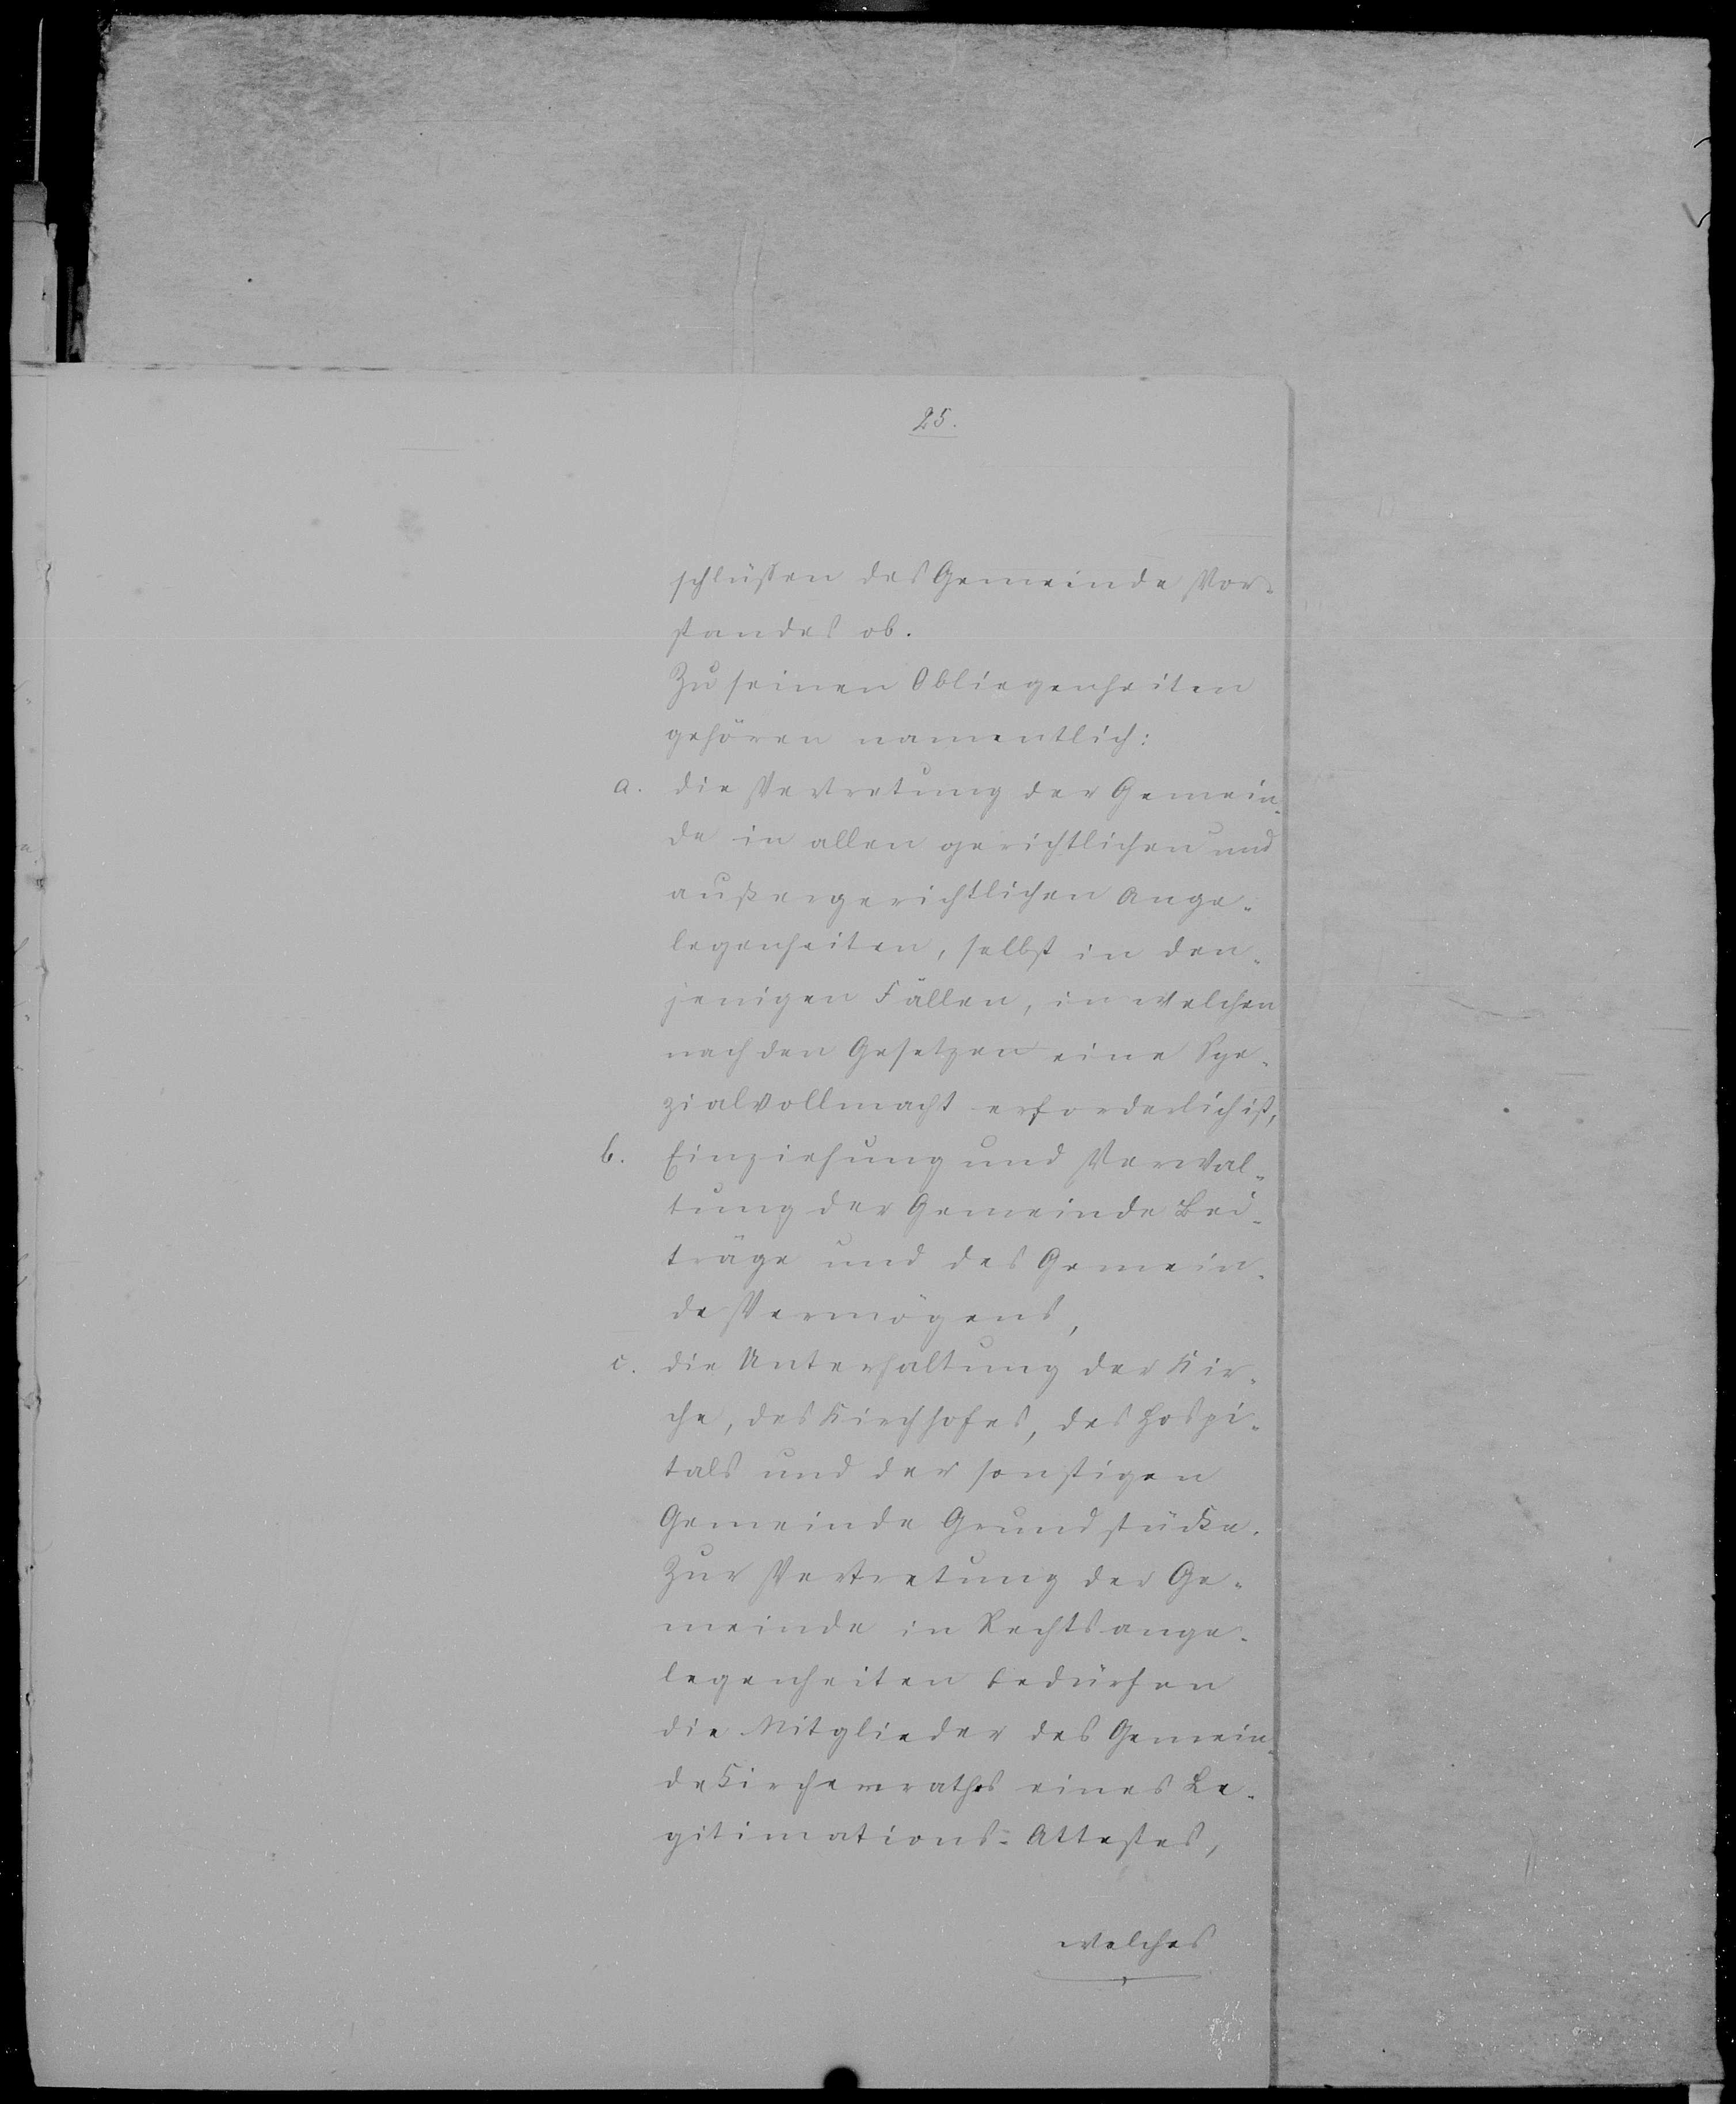 25.
schlüssen des Gemeinde Vor-
standes ob.
Zu seinen Obliegenheiten
gehören namentlich:
a. die Vertretung der Gemein-
de in allen gerichtlichen und
außergerichtlichen Ange-
legenheiten, selbst in den-
jenigen Fällen, in welchen
nach den Gesetzen eine Spe-
zialvollmacht erforderlich ist,
b. Einziehung und Verwal-
tung der Gemeinde Bei-
träge und des Gemein-
de Vermögens,
c. die Unterhaltung der Kir-
che, des Kirchhofes, des Hospi-
tals und der sonstigen
Gemeinde Grundstücke.
Zur Vertretung der Ge-
meinde in Rechtsange-
legenheiten bedürfen
die Mitglieder des Gemein-
de Kirchenrathes eines Le-
gitimations-Attestes,
welches